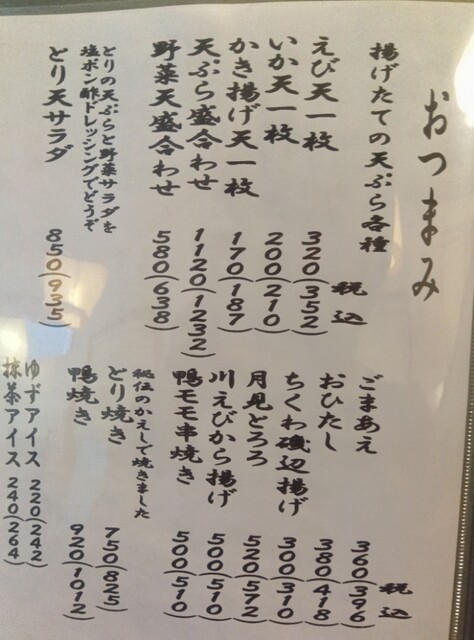 おつまみ
揚げたての天ぷら各種
税込
えび天一枚 320(352)
いか天一枚 200(210)
かき揚げ天一枚 170(187)
天ぷら盛合わせ 1120(1232)
野菜天盛合わせ 580(638)
とりの天ぷらと野菜サラダを
塩ポン酢ドレッシングでどうぞ
とり天サラダ 850(935)
税込
ごまあえ 360(396)
おひたし 380(418)
ちくわ磯辺揚げ 300(310)
月見とろろ 520(572)
川えびから揚げ 500(510)
鴨モモ串焼き 500(510)
秘伝のかえしで焼きました
とり焼き 750(825)
鴨焼き 920(1012)
ゆずアイス 220(242)
抹茶アイス 240(264)